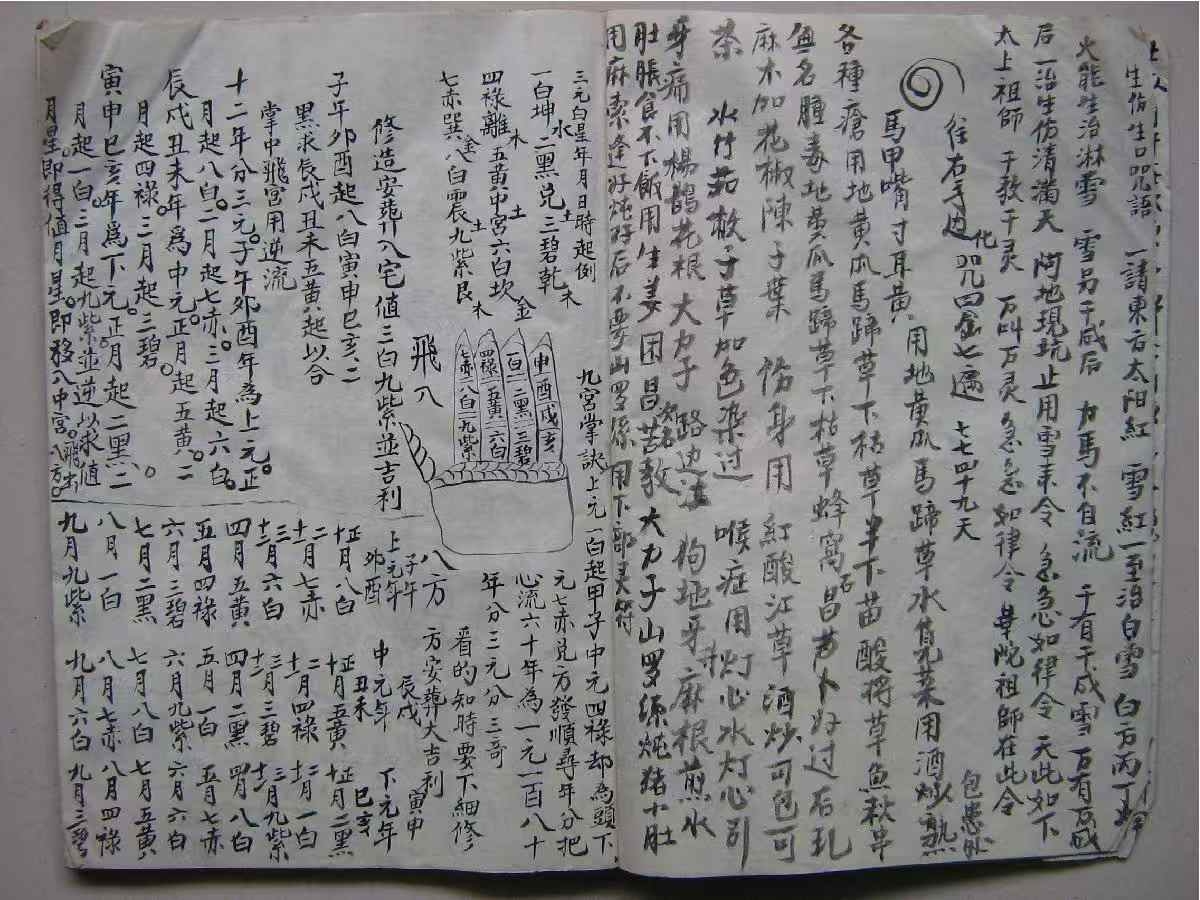 生伤生咒語 一請東方太陽紅 雪紅一至治白雪 白方丙丁
火能生治淋雪 雪另千成后 力馬不自流 千有千成雪万有万成
后一治生伤清満天 陶地現坑止用雪来令 急急如律令 天此如下
太上祖師 千教千灵 万叫万灵 急急如律令 華院祖師在此令
往右手边化 咒四金七遍 七七四十九天
馬甲嘴寸耳黄 用地黄瓜馬蹄草水 菜用酒炒熟 包患处
各種瘡用地黄瓜馬蹄草下枯草半下苗酸将草魚秋串
無名腫毒地黄瓜馬蹄草下枯草蜂窩石昌芦卜好过石孔
麻木加花椒陳子葉 伤身用紅酸江草酒炒可包可
茶 水竹茹 子草加色柒过 喉症用灯心水灯心引
牙痛用楊鵲花根大力子 路边 狗地牙麻根煎水
肚脹食不下飯用生美田昌苦教大力子山罗 炖猪十肚
用麻索逢好炖好后不要山罗 用下部
三元白星年月日時起例
一白坤水二黑兑土三碧乾木
四禄離木五黄中宮土六白坎金
七赤巽金八白震土九紫艮木
修造安葬八宅值三白九紫並吉利
子午卯酉起八白寅申巳亥二
黑求辰戌丑未五黄起以合
掌中飛宮用逆流
十二年分三元子午卯酉年為上元正
月起八白二月起七赤三月起六白
辰戌丑未年為中元正月起五黄二
月起四禄三月起三碧
寅申巳亥年為下元正月起二黑二
月起一白三月起九紫並逆以求值
月星即得值月星即移入中宮飛出八方
九宮掌訣上元一白起甲子中元四禄却為頭下
元七赤兑方發順尋年分把
心流六十年為一元一百八十
年分三元分三哥
看的知時要下細修
方安葬大吉利
飛入
八方
申酉戌亥
一白二黑三碧
四禄五黄六白
七赤八白九紫
上元年 子午卯酉
正十月八白
二十一月七赤
三十二月六白
四月五黄
五月四禄
六月三碧
七月二黑
八月一白
九月九紫
中元年 辰戌丑未
正十月五黄
二十一月四禄
三十二月三碧
四月二黑
五月一白
六月九紫
七月八白
八月七赤
九月六白
下元年 寅申巳亥
正十月二黑
二十一月一白
三十二月九紫
四月八白
五月七赤
六月六白
七月五黄
八月四禄
九月三碧